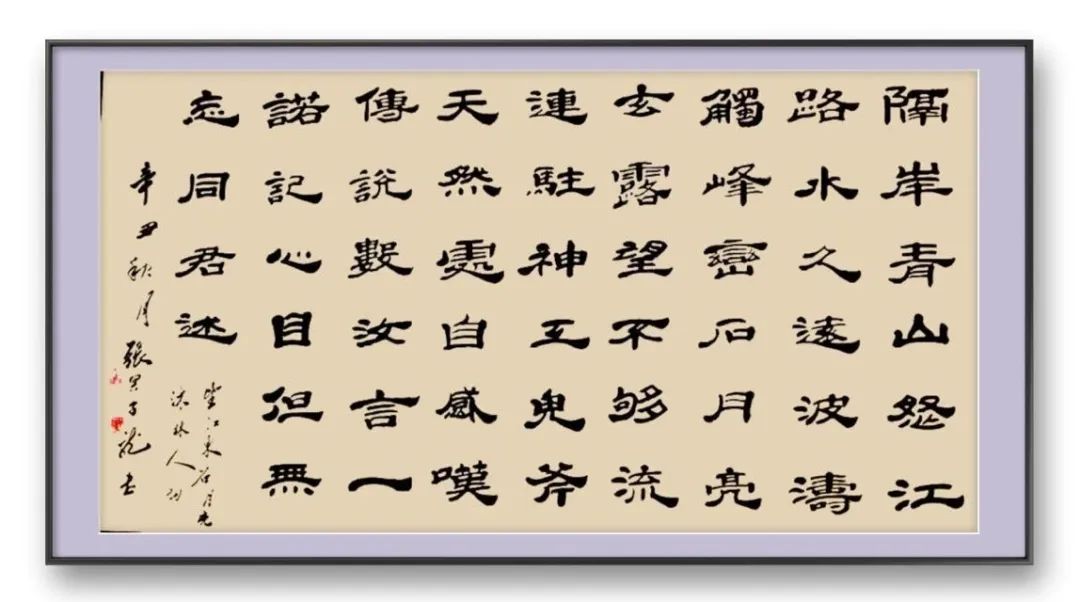 隔岸青山怒江
路水久遠波濤
觸峰巒石月亮
玄露望不够流
連駐神工鬼斧
天然處自感嘆
傳說數汝言一
諾記心目但無
忘同君述
江東石月亮
沐林人詞
辛丑秋月
張子龍書